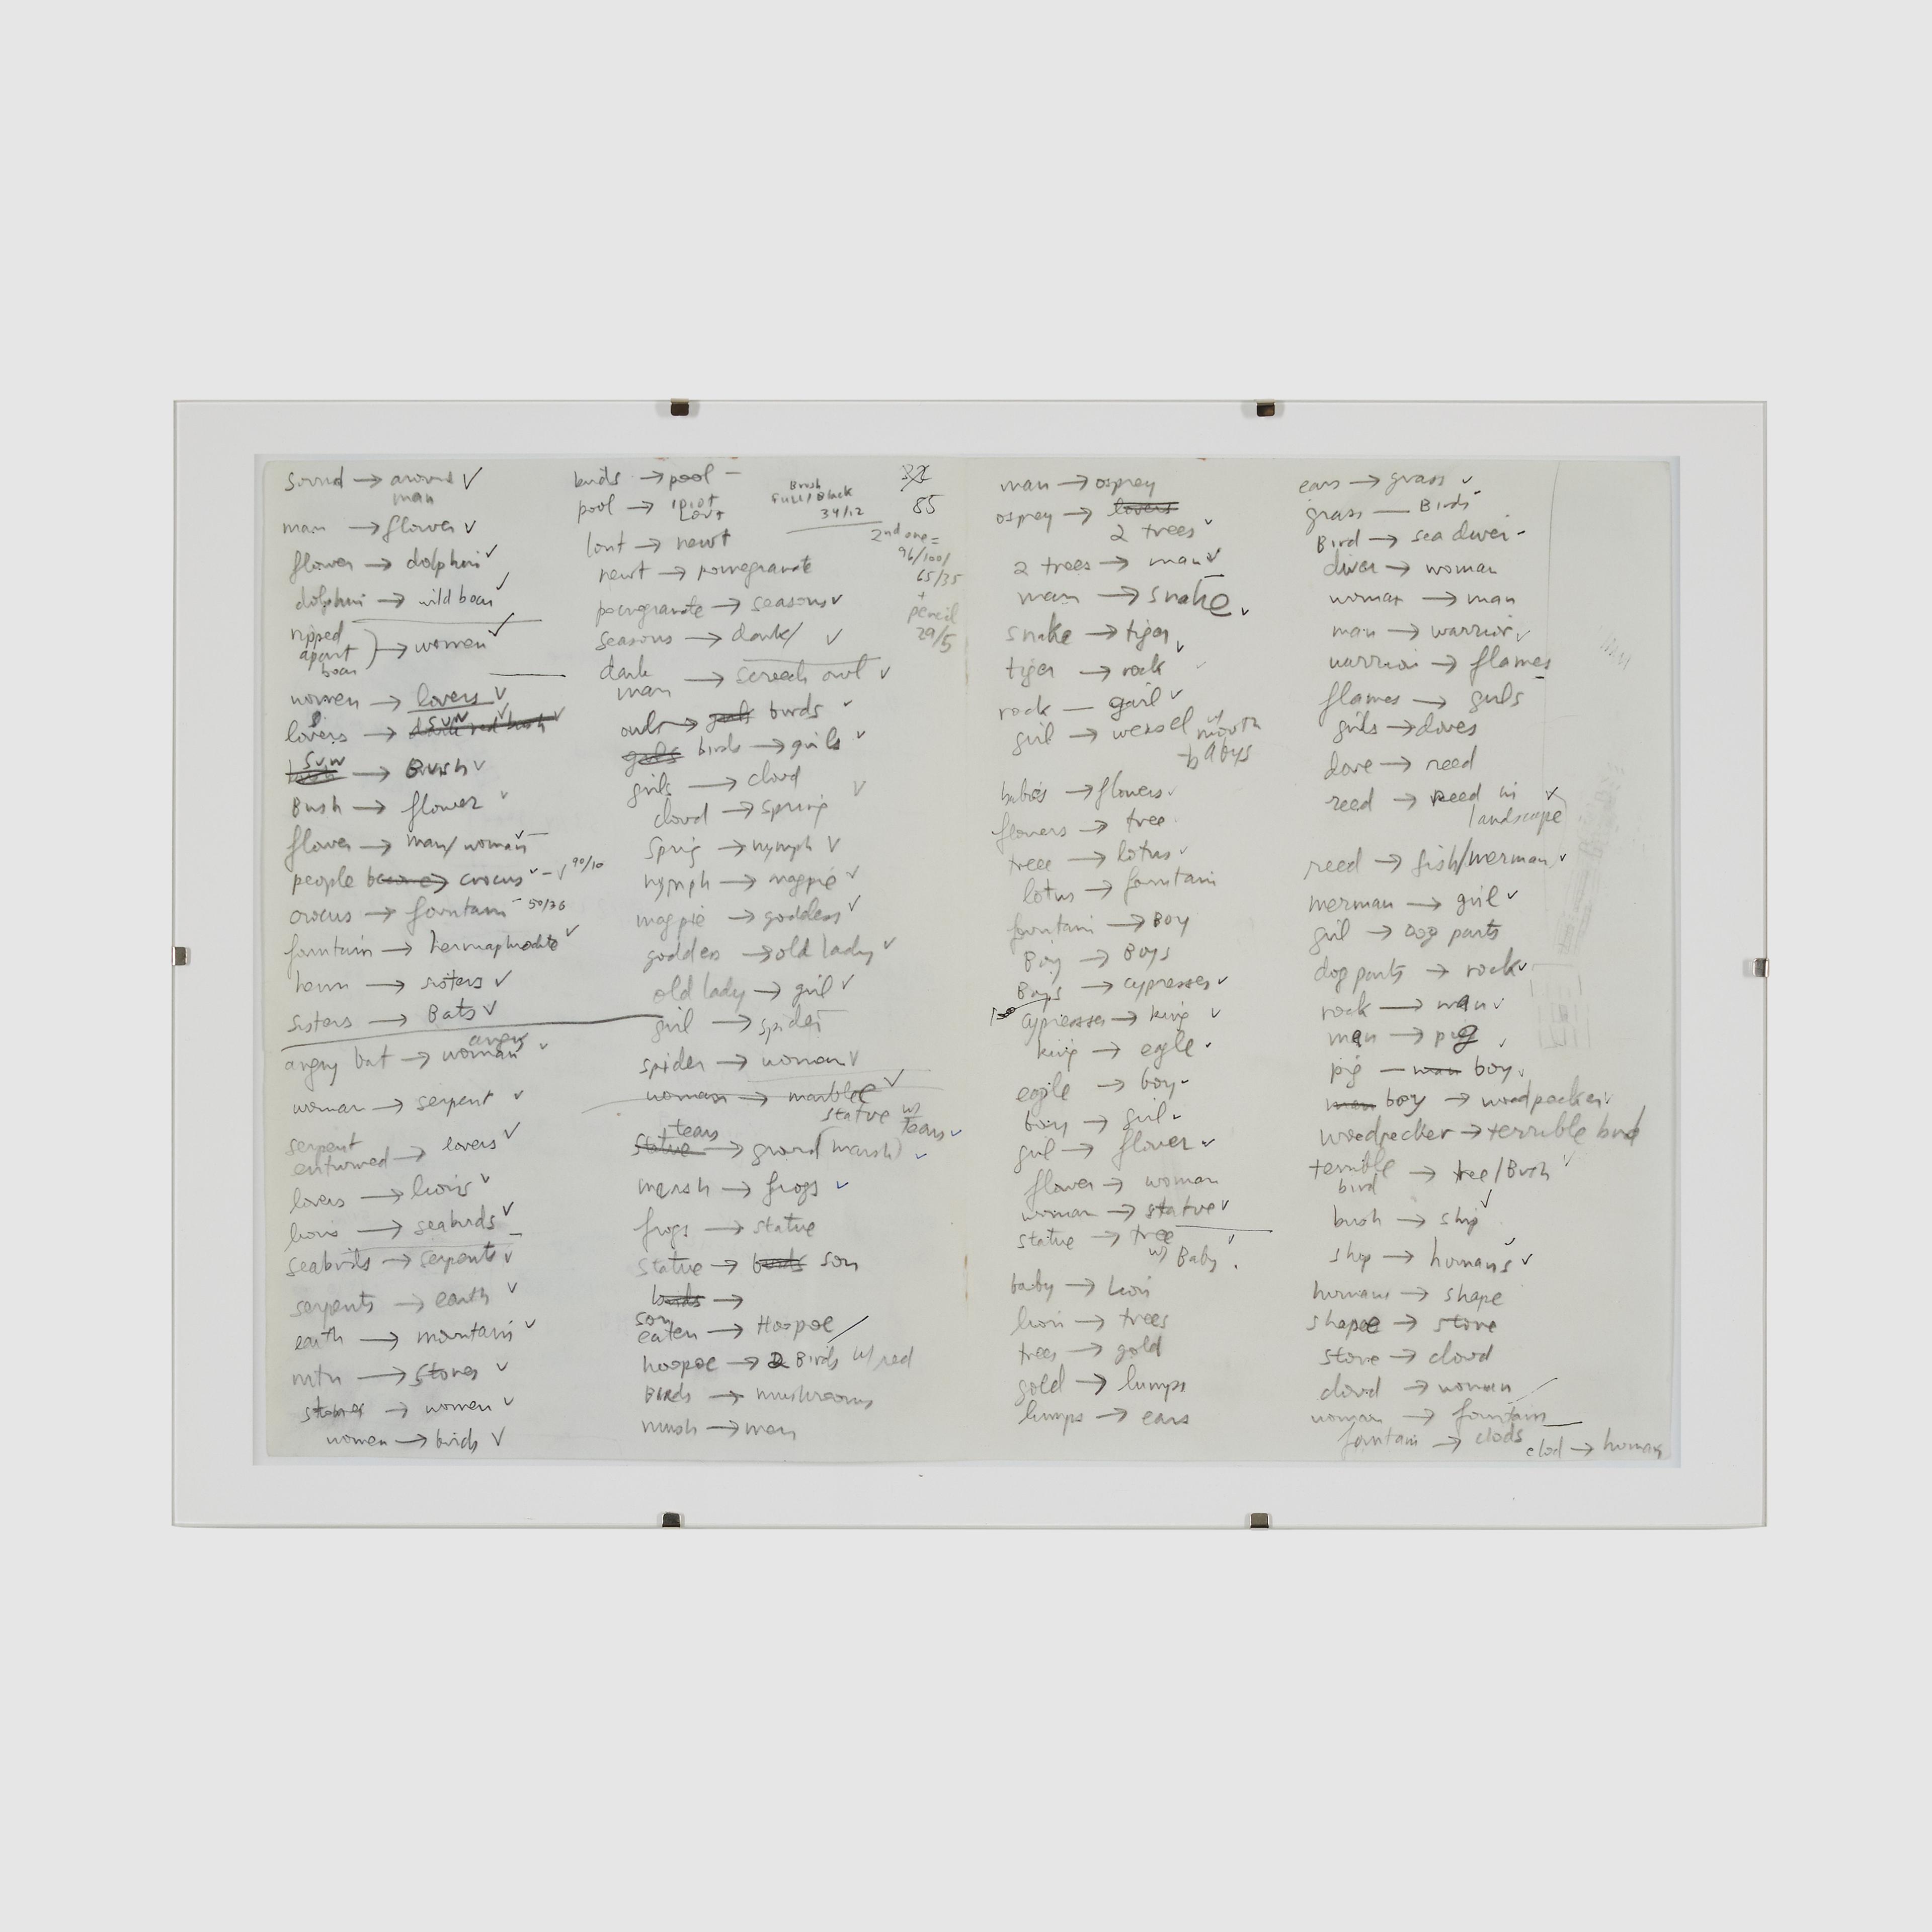 sound → around ✓
man
man → flower ✓
flower → dolphin ✓
dolphin → wild boar ✓
ripped
apart } → women ✓
boar
women → lovers ✓
lovers →
sun → Brush ✓
Bush → flower ✓
flower → man/woman ✓ –
people become → crocus ✓ – ✓ 90/10
crocus → fountain – 50/36
fountain → hermaphrodite ✓
→ sisters ✓
sisters → Bats ✓
angry
angry bat → woman ✓
woman → serpent ✓
serpent
enturned → lovers ✓
lovers → lions ✓
lions → seabirds ✓
seabirds → serpents ✓
serpents → earth ✓
earth → mountain ✓
mtn → stones ✓
stones → women ✓
women → birds ✓
birds → pool –
pool →
→ newt
newt → pomegranate
pomgranate → seasons ✓
seasons → dark/ ✓
dark
man → screech owl ✓
owls → girls birds ✓
girls birds → girls ✓
girls → cloud
cloud → spring ✓
sprig → nymph ✓
nymph → magpie ✓
magpie → goddess ✓
goddess → old lady ✓
old lady → girl ✓
girl → spider
spider → woman ✓
woman → marble ✓
statue w/
tears ✓
tears
statue → ground (marsh) ✓
marsh → frogs ✓
frogs → statue
statue → birds son
birds →
son
eaten → Hoopoe /
hoopoe → 2 Birds w/ red
Birds → mushrooms
mush → men
Brush
Full/Black
34/12
85
2nd one =
96/100/
65/35
+
pencil
29/5
man → osprey
osprey → lovers
2 trees ✓
2 trees → man ✓
man → snake ✓
snake → tiger ✓
tiger → rock ✓
rock – girl ✓
girl → weasel w/
mouth
babys
babies → flowers ✓
flowers → tree
treee → lotus ✓
lotus → fountain
fountain → Boy
Boy → Boys
Boys → cypresses ✓
cypresses → king ✓
king → egle ✓
eagle → boy ✓
boy → girl ✓
girl → flower ✓
flower → woman
woman → statue ✓
statue → tree ✓
w/ Baby
baby → lion
lion → trees
trees → gold
gold → lumps
lumps → ears
ears → grass ✓
grass — Birds
Bird → sea diver -
diver → woman
woman → man
man → warrior ✓
warrior → flames
flames → girls
girls → doves
dove → reed
reed → reed in ✓
landscape
reed → fish/merman ✓
merman → girl ✓
girl → Dog parts
dog parts → rock ✓
rock → man ✓
man → pig ✓
pig — man boy ✓
man boy → woodpecker ✓
woodpecker → terrible bird
terrible
bird → tree/Bush ✓
bush → ship ✓
ship → humans ✓
humans → shape
shapee → stone
stone → cloud
cloud → woman /
woman → fountain
fountain → clods
clod → human